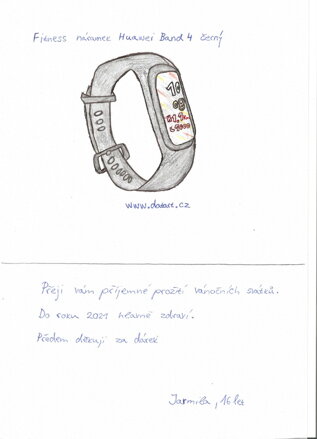 Fitness náramek Huawei Band 4 černý
10
08
www.datart.cz
Přeji vám příjemné prožití vánočních svátků.
Do roku 2021 hlavně zdraví.
Předem děkuji za dárek
Jarmila, 16 let